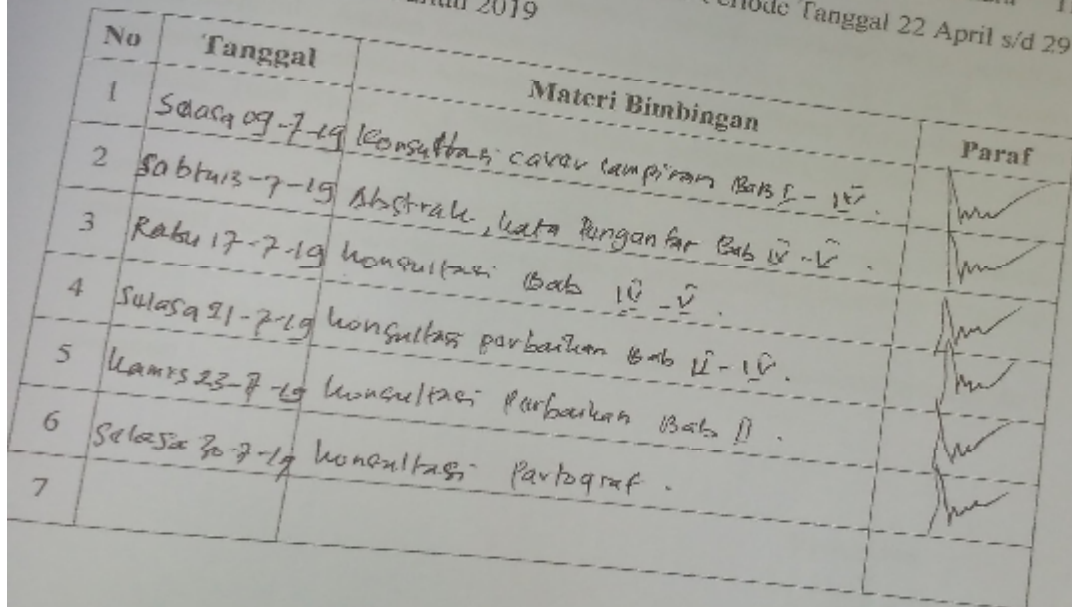 Periode Tanggal 22 April s/d 29
2019
No Tanggal Materi Bimbingan Paraf
1 Selasa 09-7-19 Konsultasi cover lampiran Bab I - IV.
2 Sabtu 13-7-19 Abstrak, kata Pengantar Bab IV - V.
3 Rabu 17-7-19 konsultasi Bab IV - V.
4 Selasa 21-7-19 konsultasi perbaikan Bab II - IV.
5 Kamis 23-7-19 konsultasi Perbaikan Bab II.
6 Selasa 30-7-19 konsultasi Partograf.
7